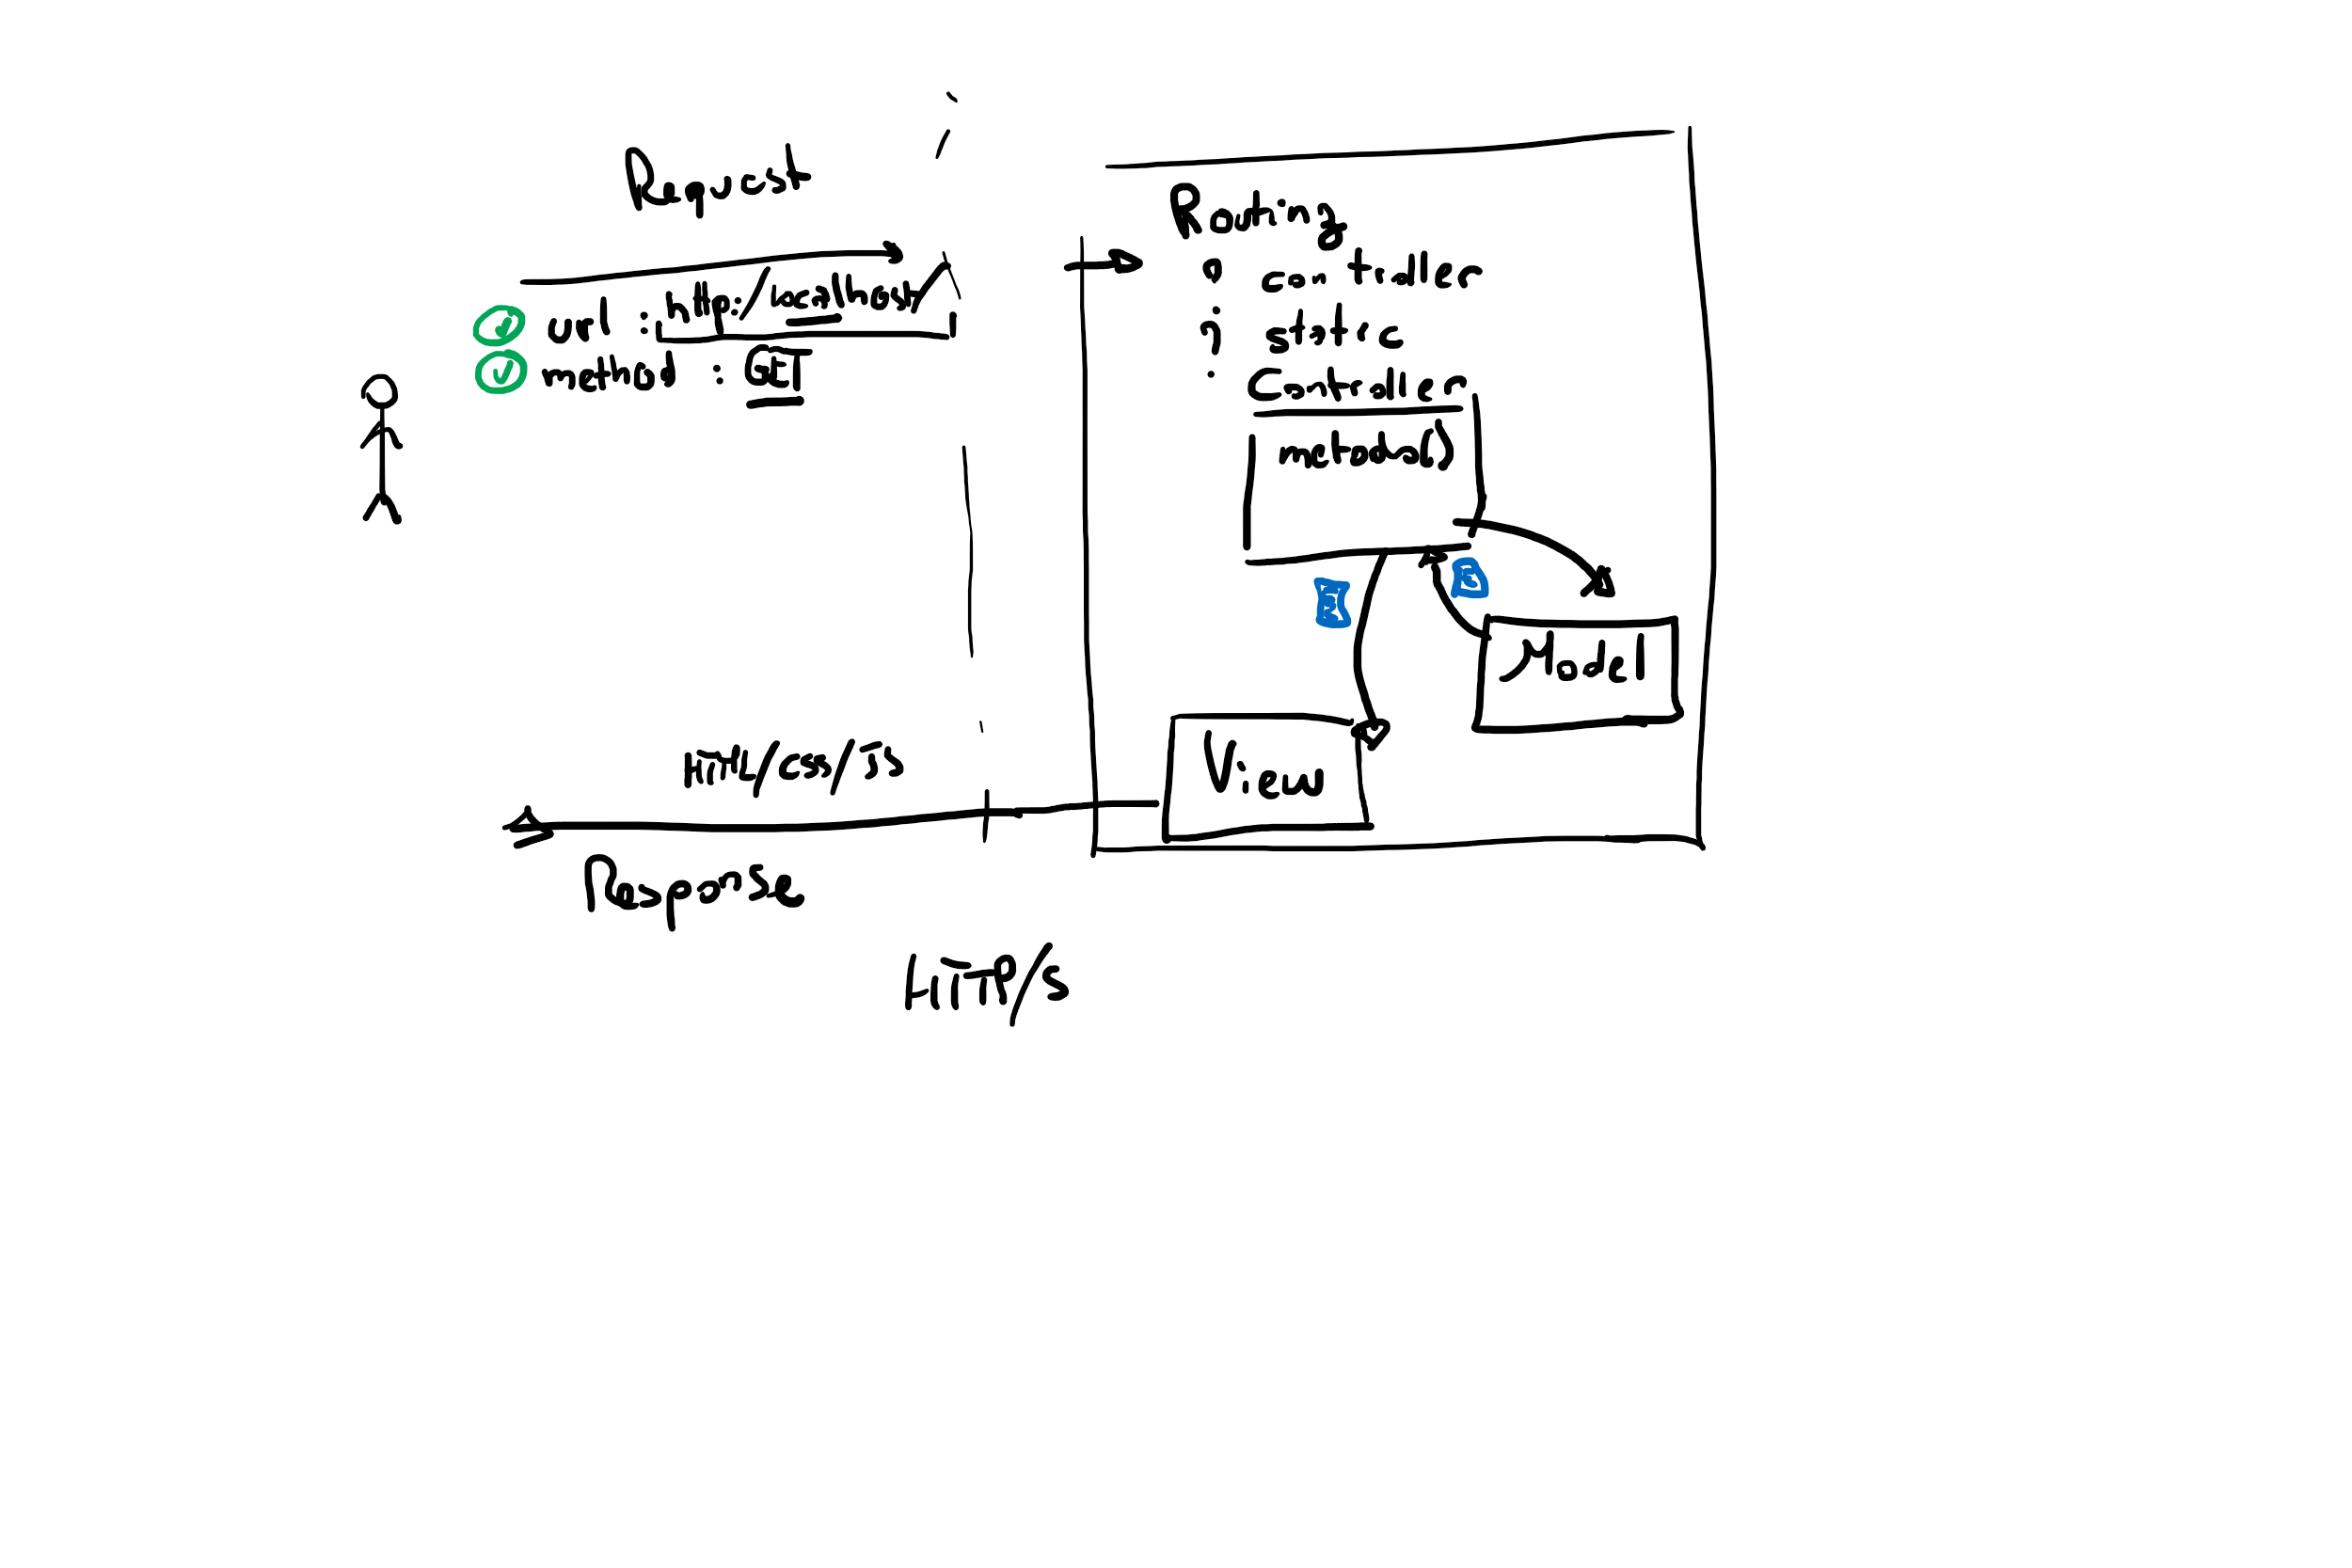 Request
url : http:/localhost/
method : GET
Routing
? controller
? static
: Controller
metodo()
Model
View
HTML/css/Js
Response
HTTP/s